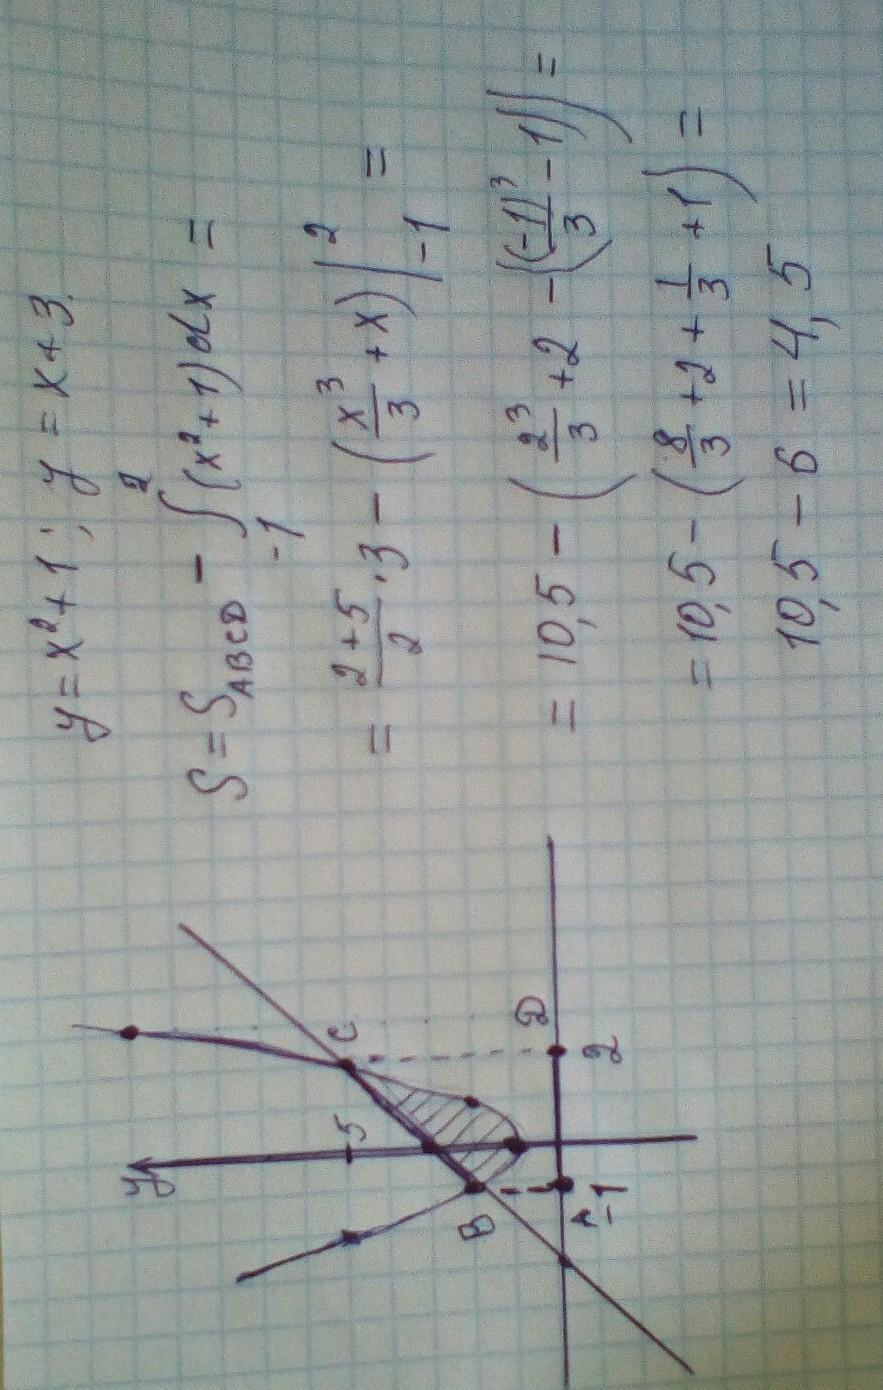 y = x² + 1; y = x + 3.
S = S_ABCD − ∫₋₁² (x² + 1) dx =
= (2+5)/2 · 3 − (x³/3 + x) |₋₁² =
= 10,5 − (2³/3 + 2 − ((-1)³/3 − 1)) =
= 10,5 − (8/3 + 2 + 1/3 + 1) =
10,5 − 6 = 4,5
y
5
C
B
A
D
-1
2